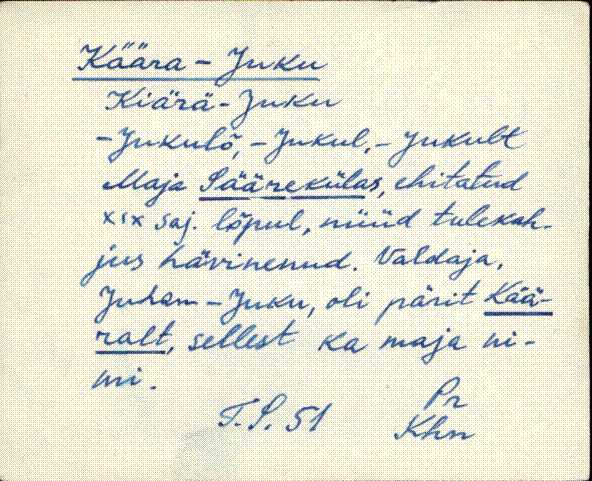 Käära - Juku
Kiärä - Juku
- Jukulõ, - Jukul, - Jukult
Maja Säärekülas, ehitatud
XIX saj. lõpul, nüüd tulekah-
jus hävinenud. Valdaja,
Juhan - Juku, oli pärit Kää-
ralt, sellest ka maja ni-
mi.
T.S. 51 Pr
Khn